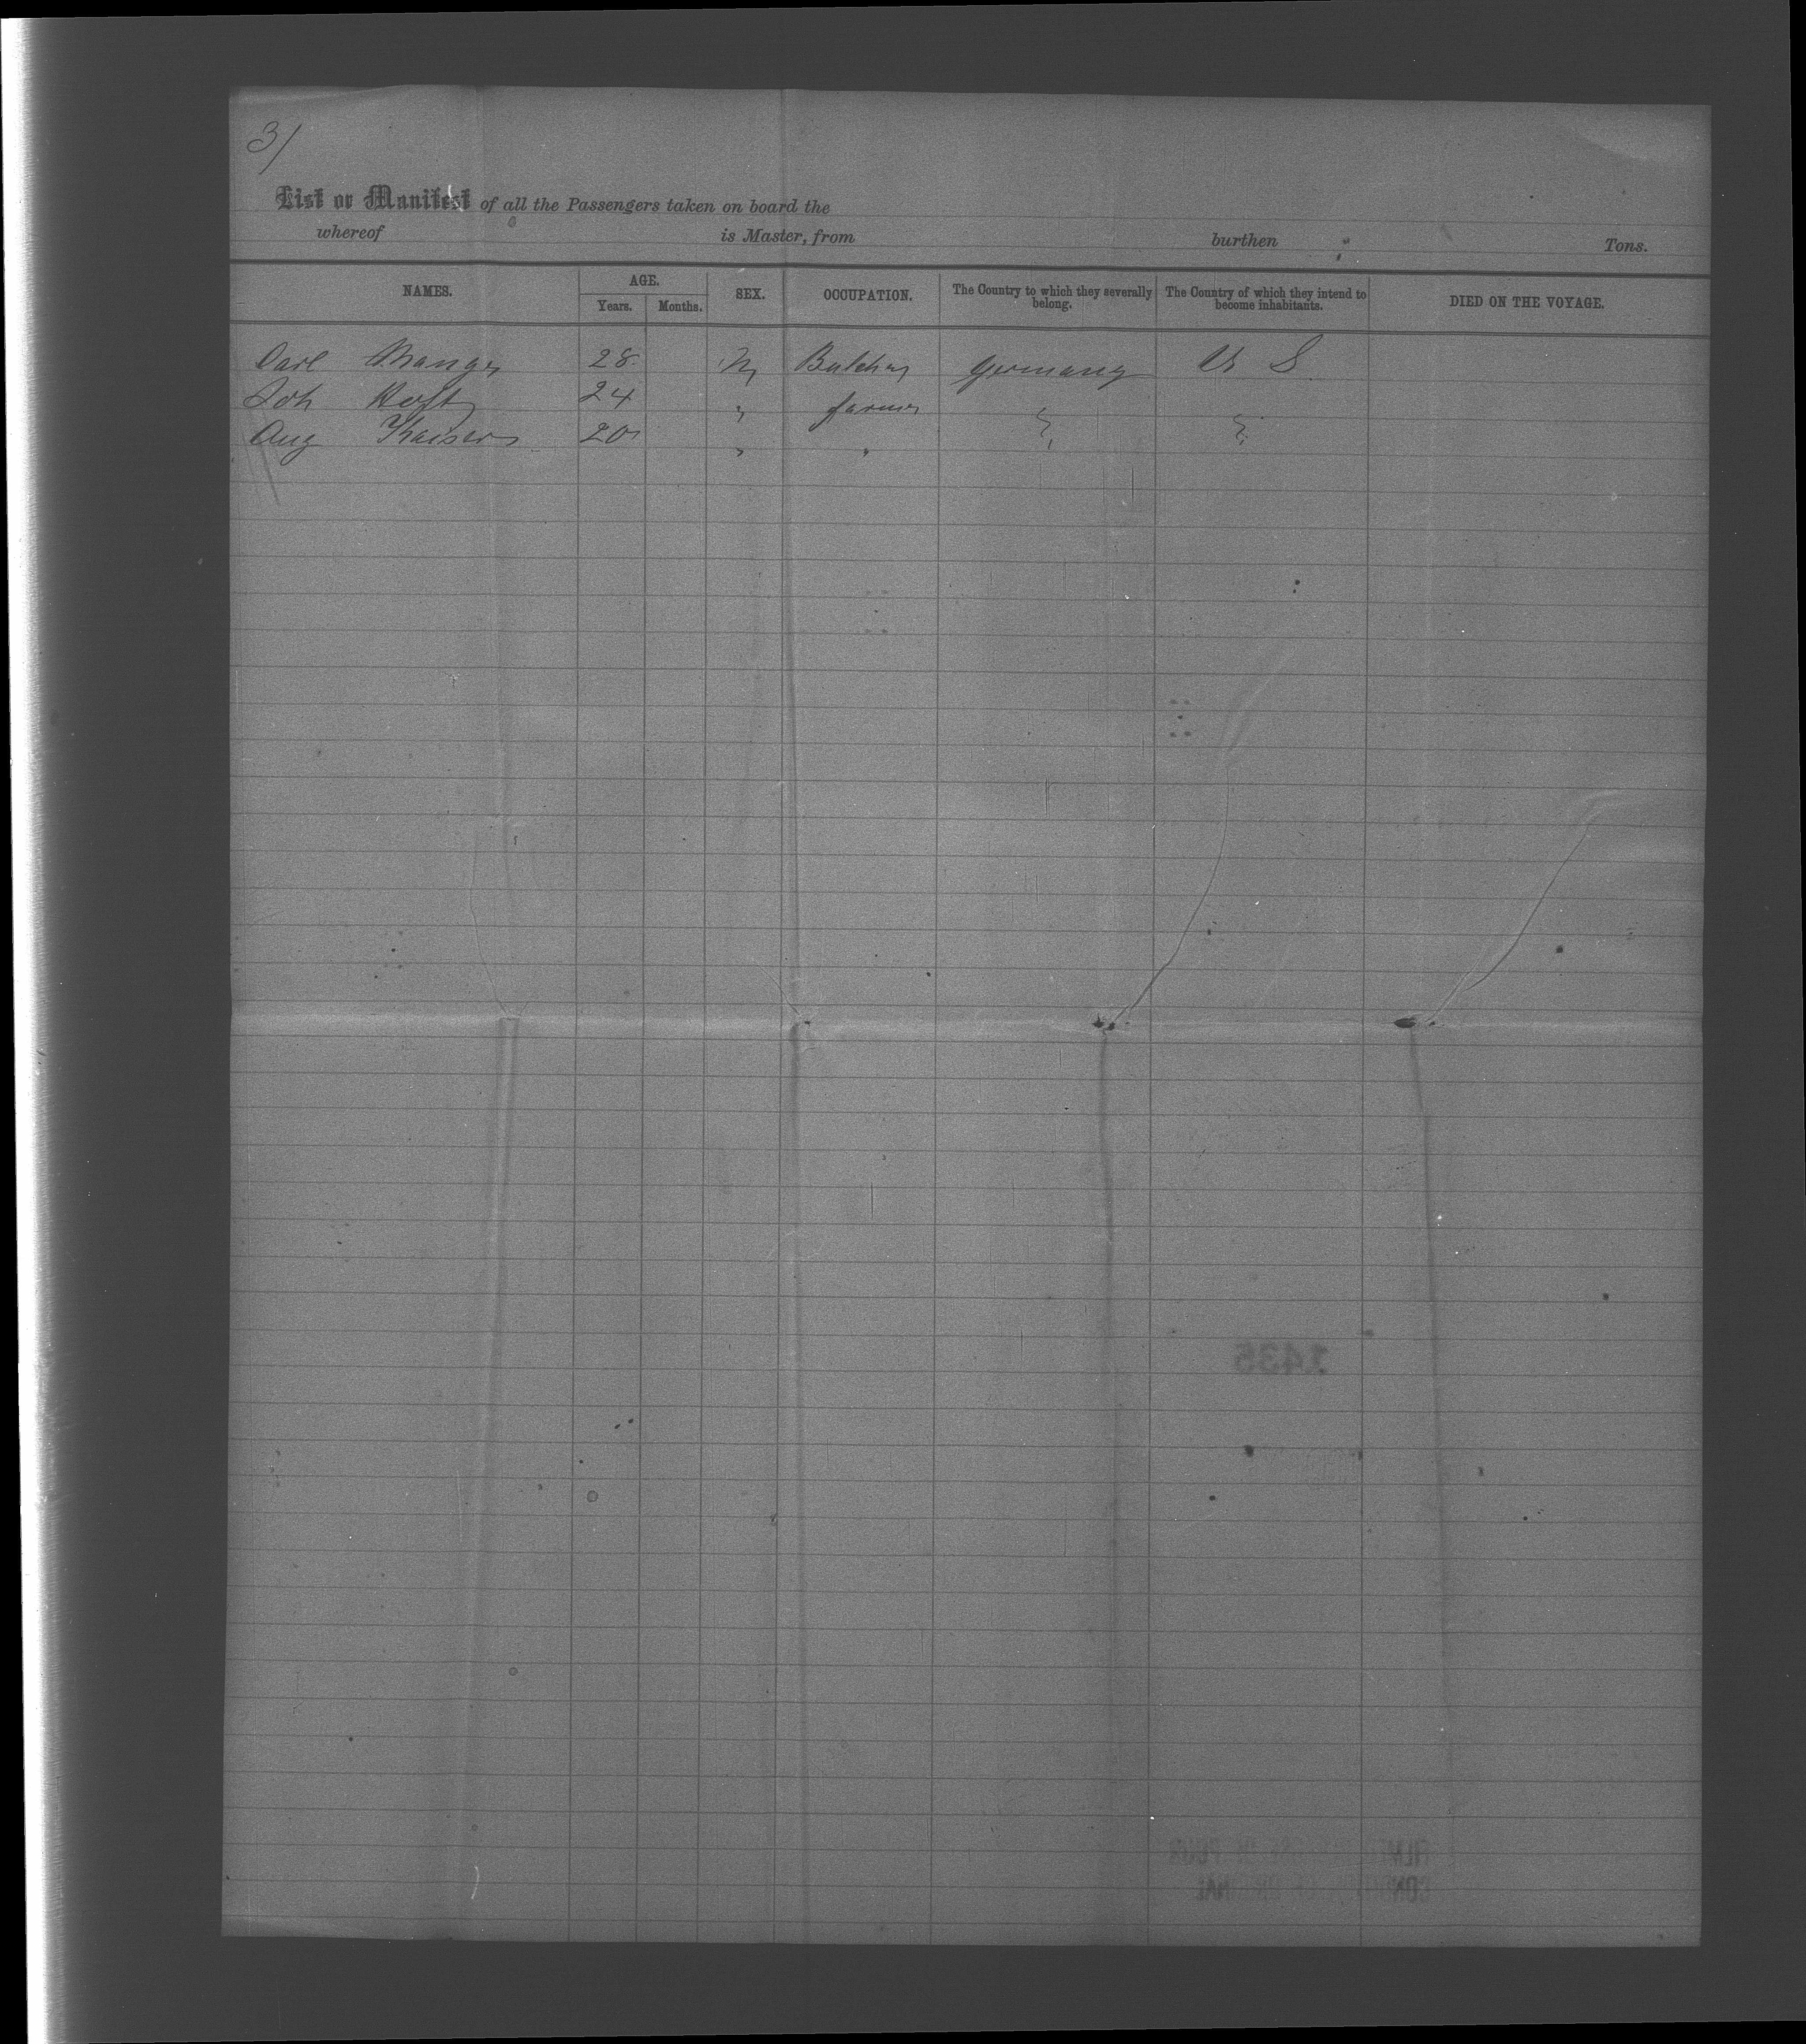 3/
List or Manifest of all the Passengers taken on board the
whereof is Master, from burthen Tons.
NAMES. AGE. SEX. OCCUPATION. The Country to which they severally belong. The Country of which they intend to become inhabitants. DIED ON THE VOYAGE.
Years. Months.
Carl 28 M Butcher Germany U S
Joh 24 " farmer "
Aug Kaiser 20 " " " "
1435
CONDITION OF ORIGINAL